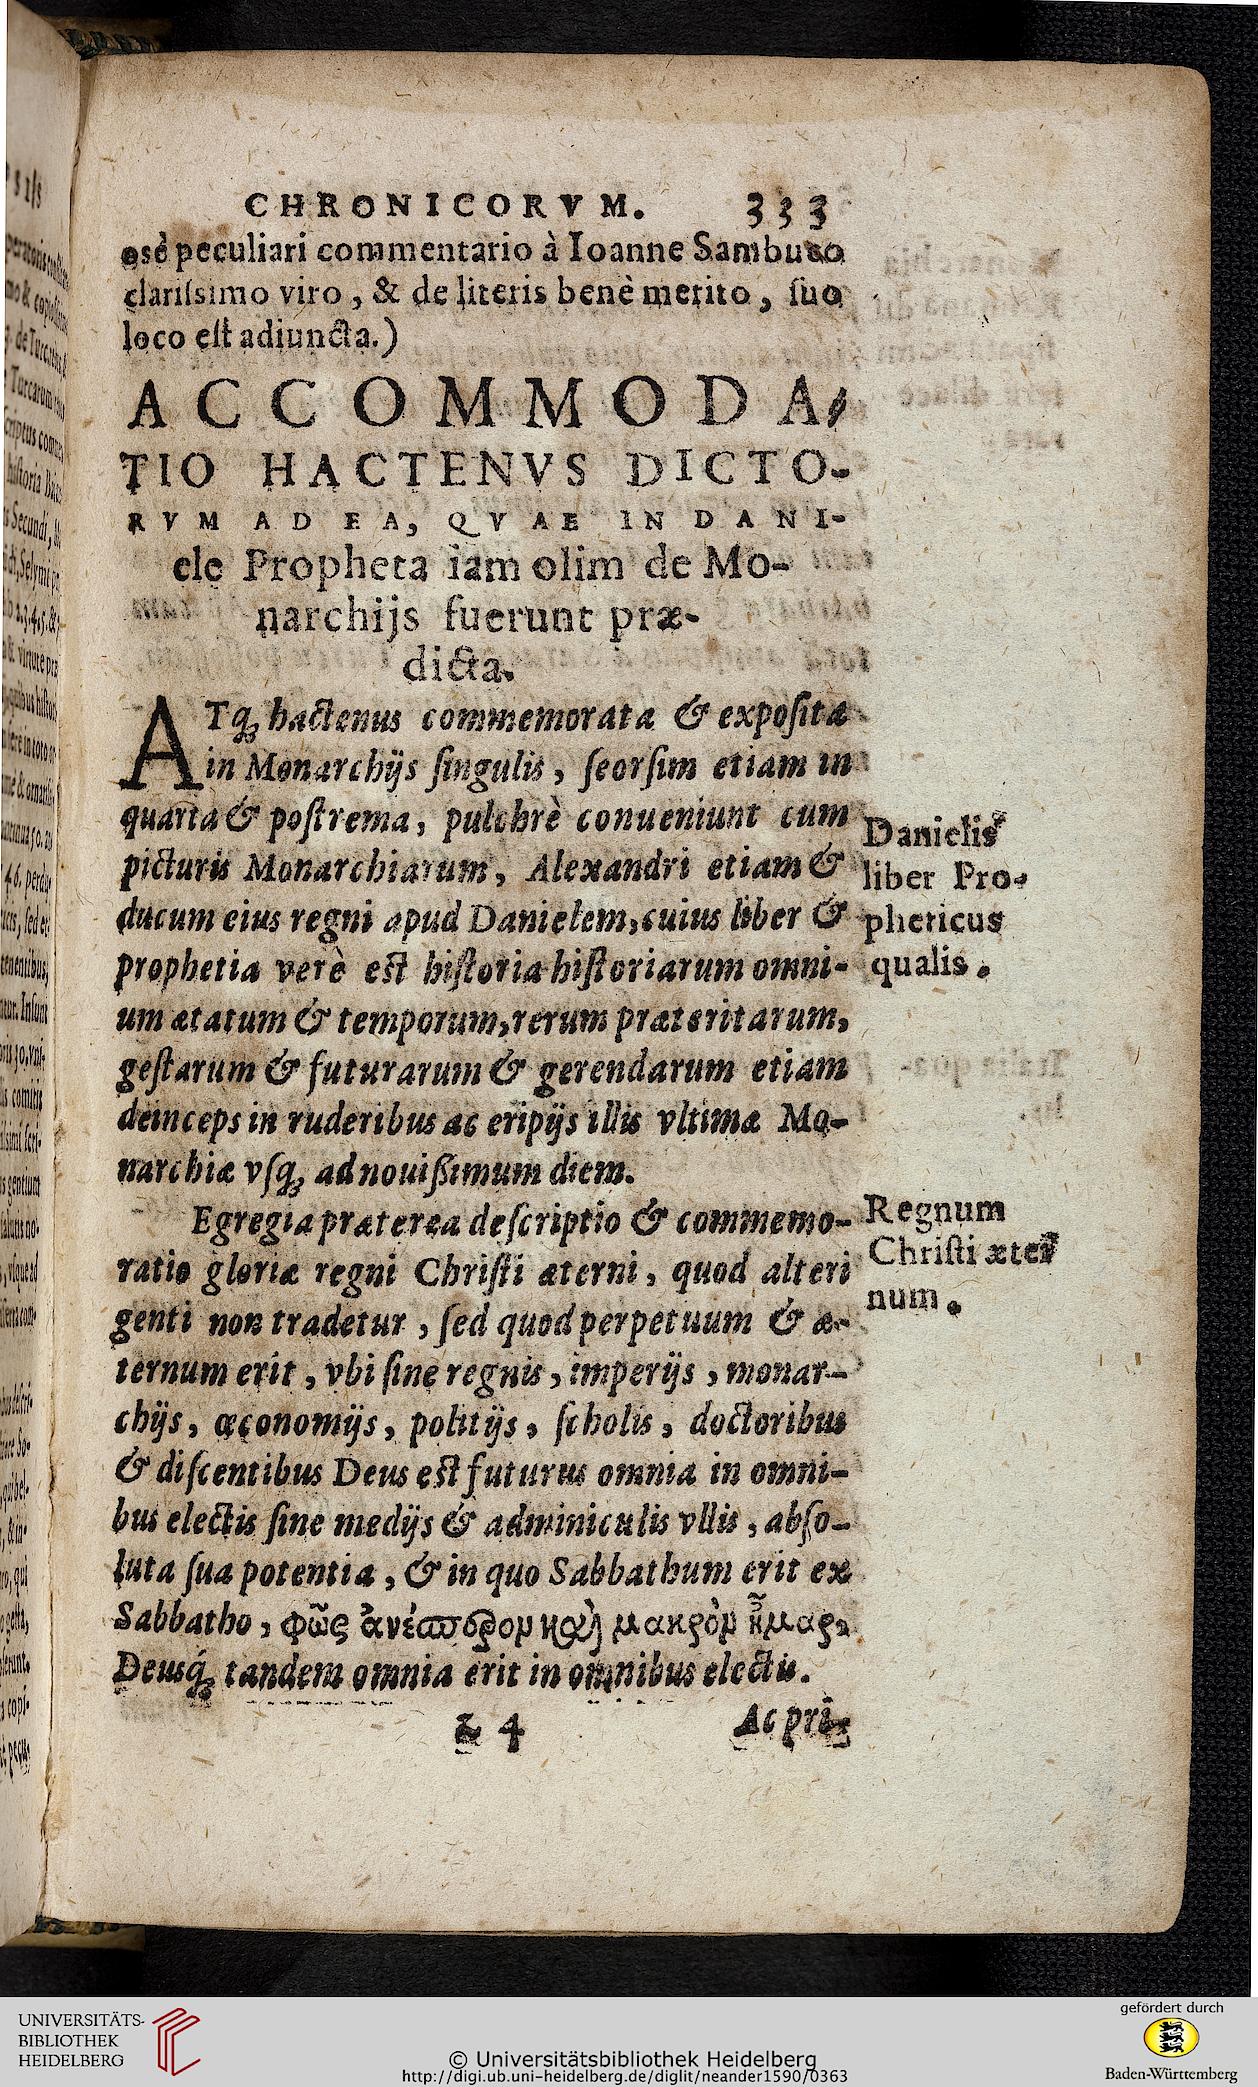 CHRONICORVM. 333
osè peculiari commentario à Ioanne Sambuco
clariſsimo viro, & de literis benè merito, ſuo
loco eſt adiuncta.)
ACCOMMODA-
TIO HACTENVS DICTO-
RVM AD EA, QVAE IN DANI-
ele Propheta iam olim de Mo-
narchijs fuerunt præ-
dicta.
ATq; hactenus commemorata & expoſita
in Monarchijs ſingulis, ſeorſim etiam in
quarta & poſtrema, pulchrè conueniunt cum
picturis Monarchiarum, Alexandri etiam &
ducum eius regni apud Danielem, cuius liber &
prophetia verè eſt hiſtoria hiſtoriarum omni-
um ætatum & temporum, rerum præteritarum,
geſtarum & futurarum & gerendarum etiam
deinceps in ruderibus ac eripijs illis vltimæ Mo-
narchiæ vſq; ad nouiſsimum diem.
Danielis
liber Pro-
pheticus
qualis.
Egregia præterea deſcriptio & commemo-
ratio gloriæ regni Chriſti æterni, quod alteri
genti non tradetur, ſed quod perpetuum & æ-
ternum erit, vbi ſine regnis, imperijs, monar-
chijs, œconomijs, politijs, ſcholis, doctoribus
& diſcentibus Deus eſt futurus omnia in omni-
bus electis ſine medijs & adminiculis vllis, abſo-
luta ſua potentia, & in quo Sabbathum erit ex
Sabbatho, φῶς ἀνέσπερον καὶ μακρὸν ἦμαρ,
Deusq́; tandem omnia erit in omnibus electis.
Regnum
Chriſti æter
num.
& 4 Ac pri-
UNIVERSITÄTS-
BIBLIOTHEK
HEIDELBERG
© Universitätsbibliothek Heidelberg
http://digi.ub.uni-heidelberg.de/diglit/neander1590/0363
gefördert durch
Baden-Württemberg